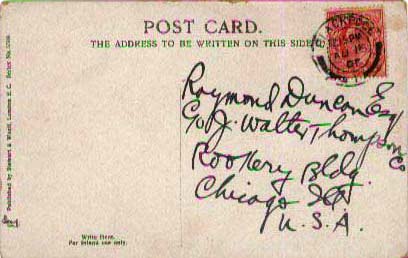 POST CARD.
THE ADDRESS TO BE WRITTEN ON THIS SIDE
BLACKPOOL
Raymond Duncan Esq
C/o J. Walter Thompson Co
Rookery Bldg.
Chicago Ill
U.S.A.
Write Here.
For Inland use only.
Published by Stewart & Woolf, London E.C. Series No.